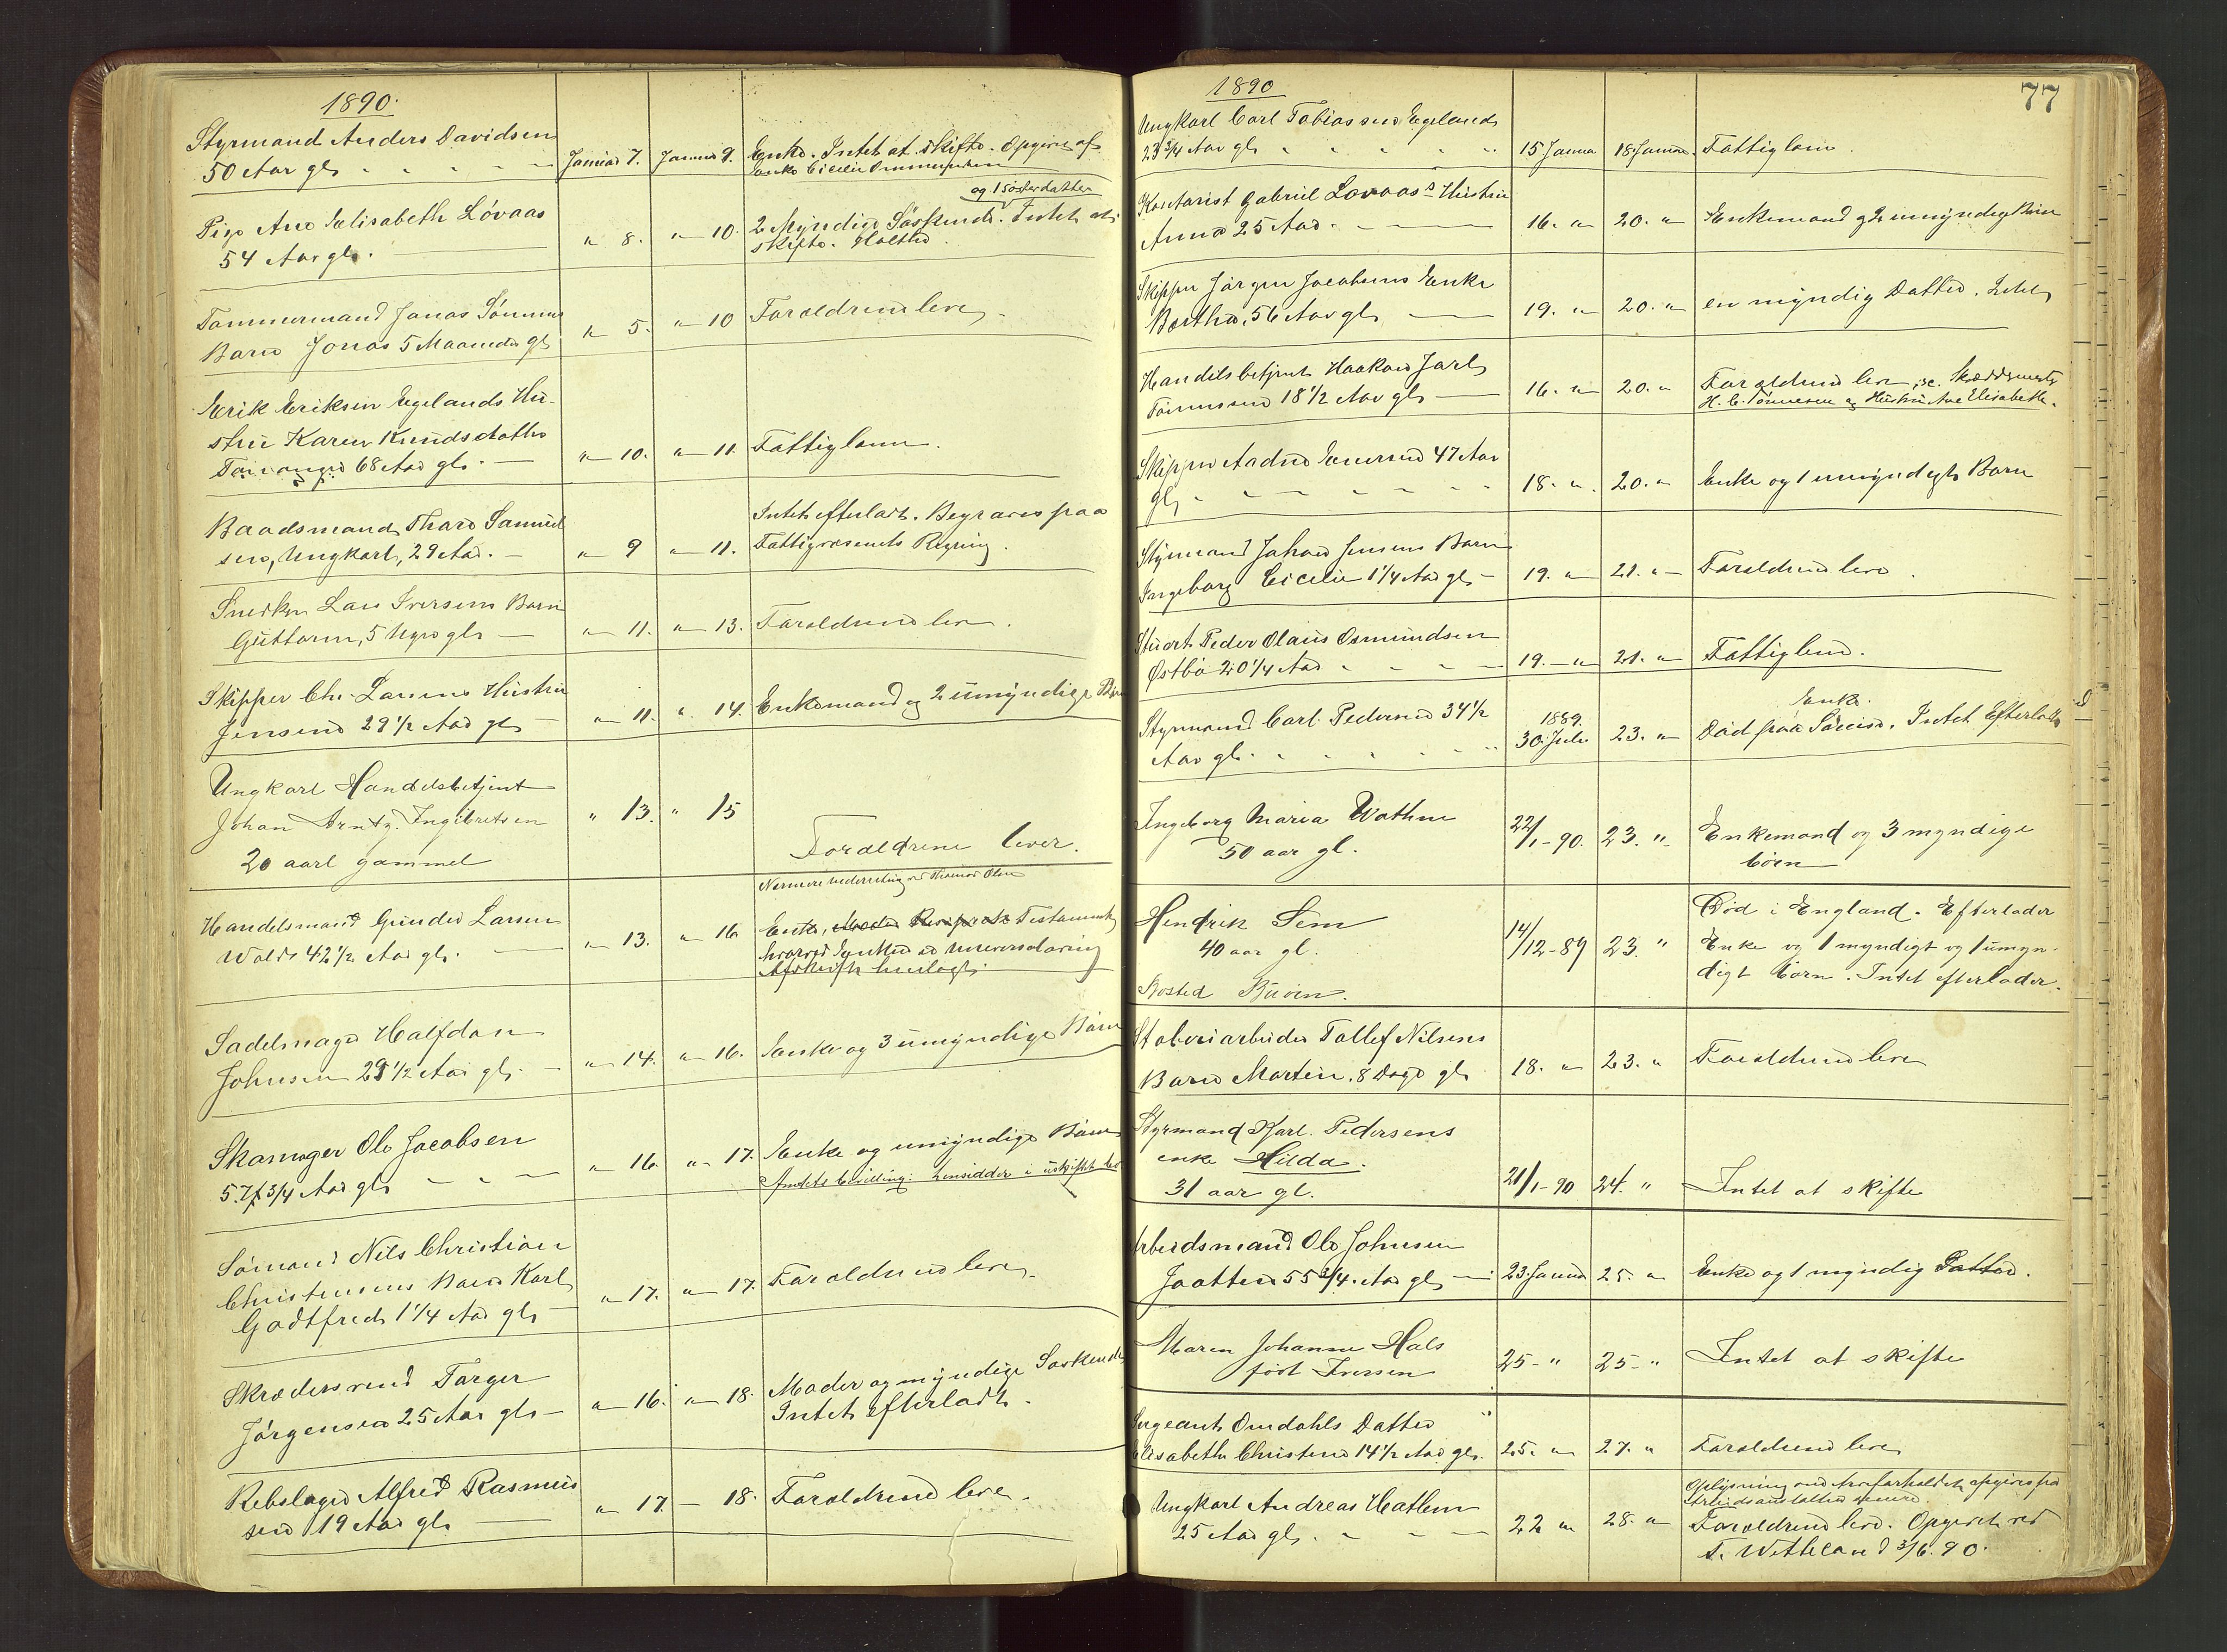 1890.
Styrmand Anders Davidsen
50 Aar gl. Januar 7. Januar 9. Enke. Intet at skifte. Opgivet af
Enke Cicilie
og 1 Søsterdatter
Pige Ane Elisabeth Lövaas
54 Aar gl. " 8. " 10. 2 Myndige Söskende. Intet at
skifte.
Tømmermand Jonas
Barn Jonas 5 Maaneder gl. " 5. " 10 Forældrene lever.
Erik Eriksen Egelands Hu-
stru Karen Knudsdatter
68 Aar gl. " 10. " 11. Fattiglem.
Baadsmand Thard Samuel
sen, Ungkarl, 29 Aar. " 9 " 11. Intet efterladt. Begraves paa
Fattigvæsenets Regning.
Snedker Lars Iversens Barn
Guttorm, 5 Uger gl. " 11. " 13. Forældrene lever.
Skipper Chr. Larsens Hustru
Jensine 29 1/2 Aar gl. " 11. " 14. Enkemand og 2 umyndige Børn
Ungkarl Handelsbetjent
Johan Arntz. Ingebretsen
20 aarl gammel " 13. " 15 Forældrene lever.
Nærmere underretning ved Thomas Olsen
Handelsmand Gunder Larsen
Wold 42 1/2 Aar gl. " 13. " 16. Enke, Testamente
hvorved Enken er Universalarving
Afskrift
Sadelmager Halfdan
Johnsen 29 1/2 Aar gl. " 14. " 16. Enke og 3 umyndige Børn
Skomager Ole Jacobsen
57 3/4 Aar gl. " 16. " 17. Enke og umyndige Børn
Amtets bevilling: hensidder i uskiftet bo
Sömand Nils Christian
Christensens Barn Karl
Godtfred 1 1/4 Aar gl. " 17. " 17. Forældrene lever.
Skrædersvend Torger
Jörgensen 25 Aar gl. " 16. " 18. Moder og myndige Søskende
Intet efterladt.
Rebslager Alfred Rasmus
sen 19 Aar gl. " 17. – 18. Forældrene lever.
1890
77
Ungkarl Carl Tobiassen Egeland
23 3/4 Aar gl. 15 Januar 18 Januar. Fattiglem.
Gabriel Lovaas's Hustru
Anna 25 Aar. 16. " 20. " Enkemand og 2 umyndige Börn
Skipper Jörgen Jacobsens Enke
Berthe, 56 Aar gl. 19. " 20. " en myndig Datter.
Handelsbetjent Haakon Jarl
Tönnessen 18 1/2 Aar gl. 16. " 20. " Forældrene lever,
H. C. Tönnesen og Hustru Ane Elisabeth.
Skipper Aadne Enersen 47 Aar
gl. 18. " 20. " Enke og 1 umyndigt Barn
Styrmand Johan Jensens Barn
Ingeborg Cicilie 1 1/4 Aar gl. 19. " 21. " Forældrene lever.
Stuert Peder Olaus Osmundsen
Østbö 20 1/4 Aar 19. " 21. " Fattiglem.
Styrmand Carl Pedersen 34 1/2
Aar gl. 1889. 30. Juli 23. " Enke.
Död paa Söreise. Intet Efterladt
Ingeborg Maria Wathne
50 aar gl. 22/1-90. 23. " Enkemand og 3 myndige
börn
Hendrik Sem
40 aar gl. 14/12-89 23. " Död i England. Efterlader
Enke og 1 myndigt og 1 umyn-
digt barn. Intet efterlader.
Bosted Buöen.
Stoberiarbeider Tollef Nilsens
Barn Martin, 8 Dage gl. 18. " 23. " Forældrene lever
Styrmand Karl Pedersens
enke Hilda.
31 aar gl. 21/1-90 24. " Intet at skifte
Arbeidsmand Ole Johnsen
Jaatten 55 3/4 Aar gl. 23. Januar 25. " Enke og 1 myndig Datter.
Maren Johanne Hals
født Iversen 25 - " 25 - " Intet at skifte
Sergeant Omdahls Datter
Elisabeth Christine 14 1/2 Aar gl. 25. " 27. " Forældrene lever
Oplysning om Arveforholdet opgives paa
Arbeidsanstalten senere.
Ungkarl Andreas Hatlem
25 Aar gl. 22 " 28. " Forældrene lever. Opgivet ved
T. Wetteland 3/6.90.